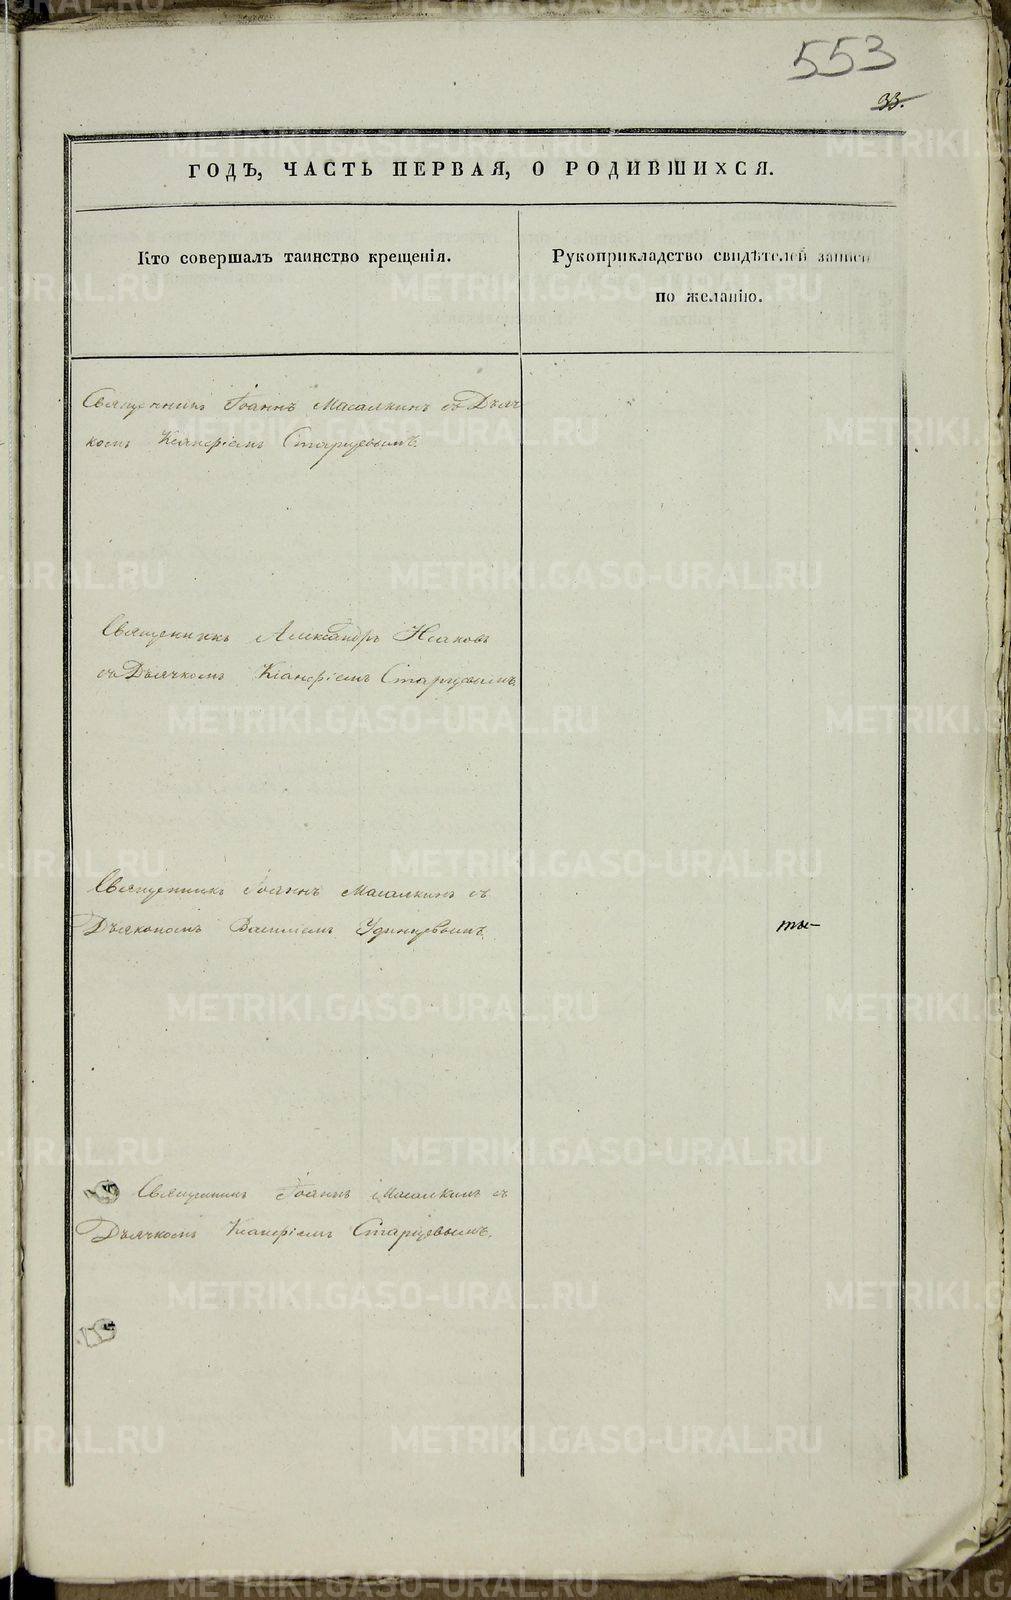 553
33.
ГОДЪ, ЧАСТЬ ПЕРВАЯ, О РОДИВШИХСЯ.
Кто совершалъ таинство крещенія.
Рукоприкладство свидѣтелей записи
по желанію.
Священникъ Іоаннъ Масалкинъ съ Дьяч
комъ Ксанфіемъ Старцевымъ.
Священникъ Александръ
съ Дьячкомъ Ксанфіемъ Старцевымъ.
Священникъ Іоаннъ Масалкинъ съ
Дьякономъ Василіемъ Удинцевымъ.
ты
Священникъ Іоаннъ Масалкинъ съ
Дьячкомъ Ксанфіемъ Старцевымъ.
METRIKI.GASO-URAL.RU